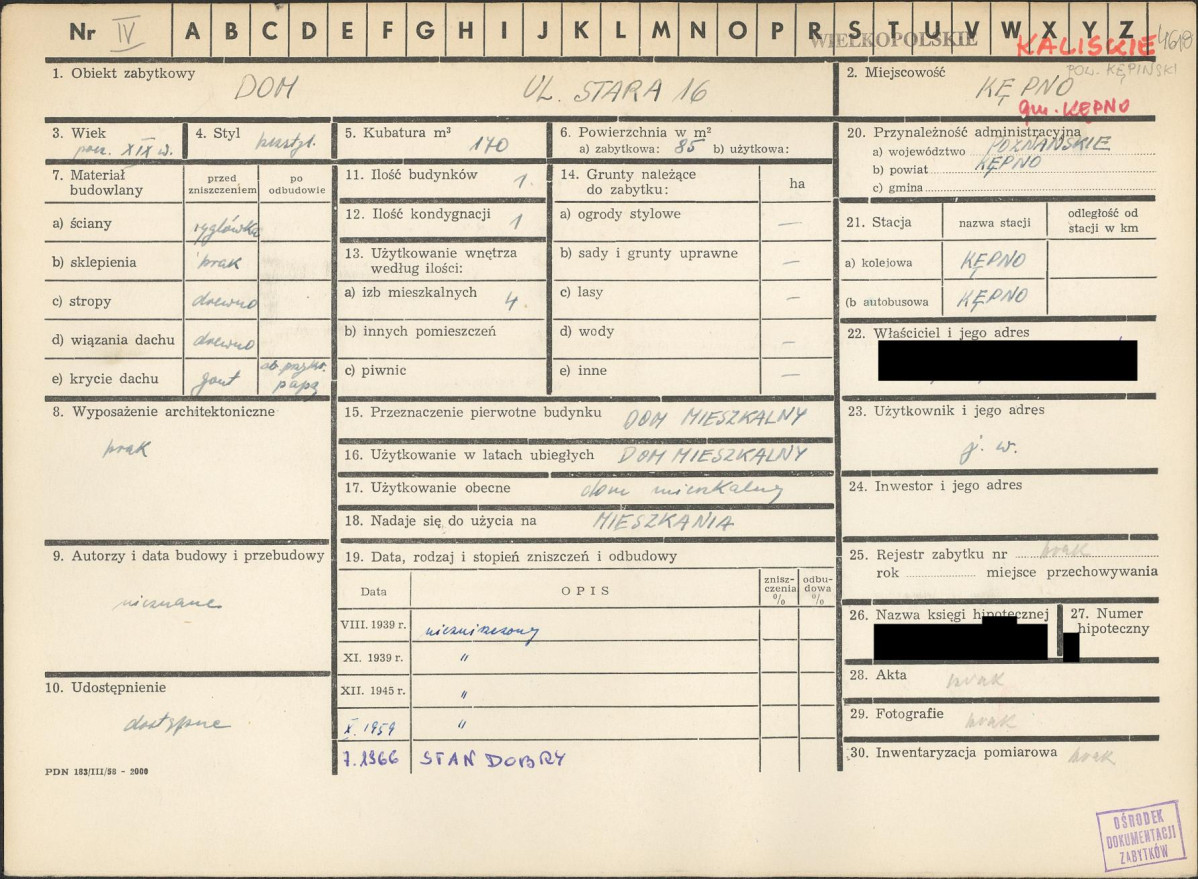 Nr IV A B C D E F G H I J K L M N O P R S T U V W X Y Z
WIELKOPOLSKIE
KALISKIE
POW. KĘPIŃSKI
1. Obiekt zabytkowy DOM UL. STARA 16
2. Miejscowość KĘPNO
gm. KĘPNO
3. Wiek pocz. XIX w.
4. Styl bezstyl.
5. Kubatura m³ 170
6. Powierzchnia w m²
a) zabytkowa: 85 b) użytkowa:
7. Materiał budowlany
przed zniszczeniem
po odbudowie
a) ściany ryglówka
b) sklepienia brak
c) stropy drewno
d) wiązania dachu drewno
e) krycie dachu gont ob. papą
8. Wyposażenie architektoniczne
brak
9. Autorzy i data budowy i przebudowy
nieznane
10. Udostępnienie
dostępne
PDN 183/III/58 - 2000
11. Ilość budynków 1.
12. Ilość kondygnacji 1
13. Użytkowanie wnętrza
według ilości:
a) izb mieszkalnych 4.
b) innych pomieszczeń
c) piwnic
14. Grunty należące
do zabytku:
ha
a) ogrody stylowe —
b) sady i grunty uprawne —
c) lasy —
d) wody —
e) inne —
15. Przeznaczenie pierwotne budynku DOM MIESZKALNY
16. Użytkowanie w latach ubiegłych DOM MIESZKALNY
17. Użytkowanie obecne dom mieszkalny
18. Nadaje się do użycia na MIESZKANIA
19. Data, rodzaj i stopień zniszczeń i odbudowy
Data
OPIS
znisz-
czenia
%
odbu-
dowa
%
VIII. 1939 r. niezniszczony
XI. 1939 r. "
XII. 1945 r. "
X. 1959 "
7. 1966 STAN DOBRY
20. Przynależność administracyjna
a) województwo POZNAŃSKIE
b) powiat KĘPNO
c) gmina
21. Stacja
nazwa stacji
odległość od
stacji w km
a) kolejowa KĘPNO
(b autobusowa KĘPNO
22. Właściciel i jego adres
23. Użytkownik i jego adres
j. w.
24. Inwestor i jego adres
25. Rejestr zabytku nr brak
rok miejsce przechowywania
26. Nazwa księgi hipotecznej
27. Numer
hipoteczny
28. Akta brak
29. Fotografie brak
30. Inwentaryzacja pomiarowa brak
OŚRODEK
DOKUMENTACJI
ZABYTKÓW